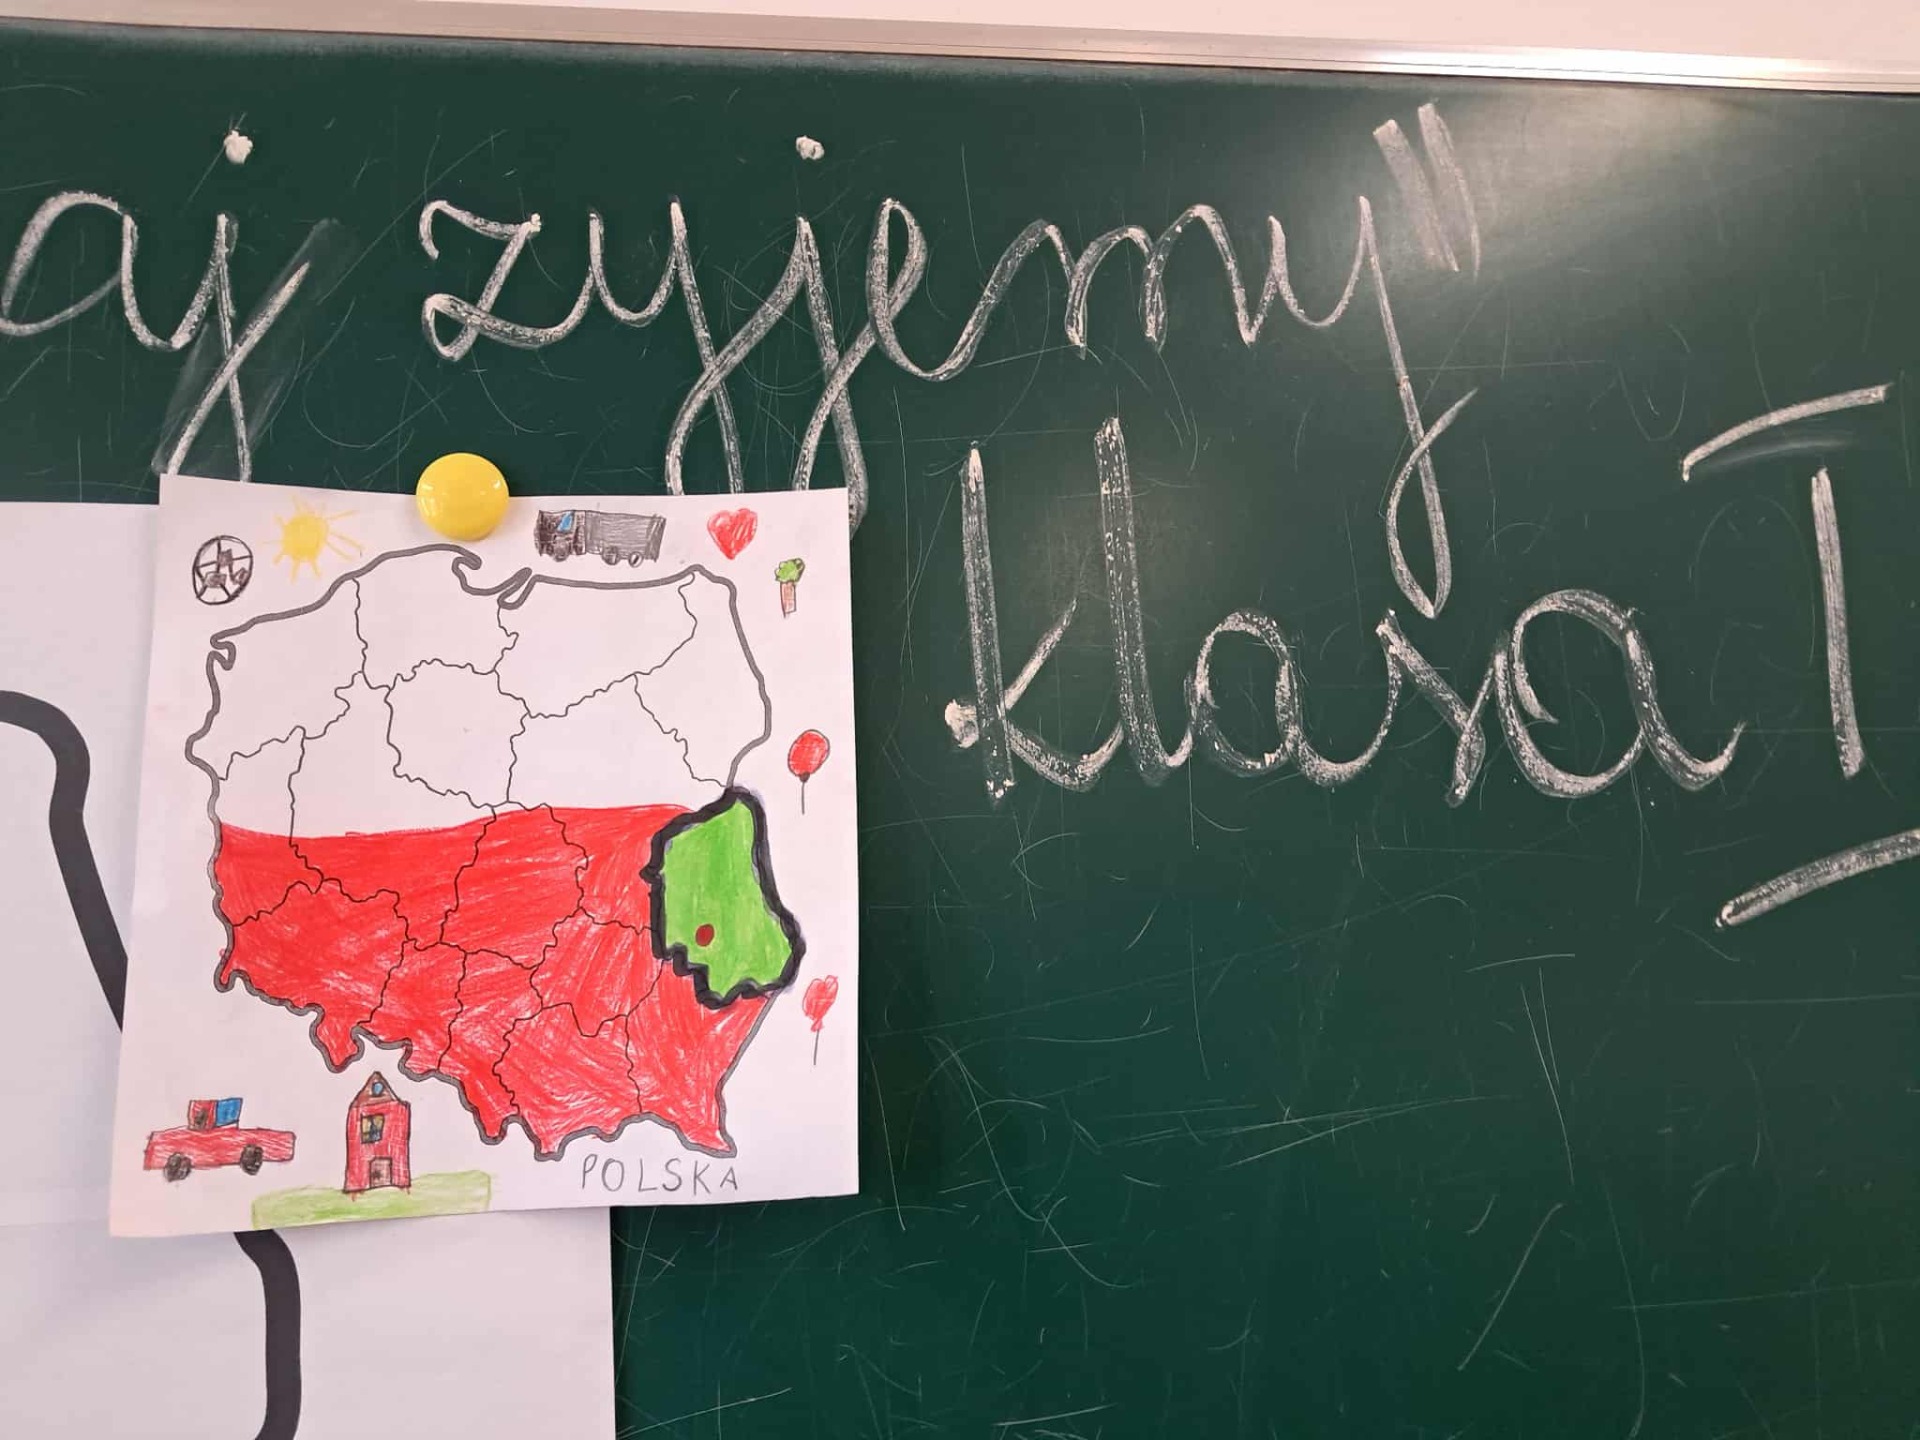 aj zyjemy"
klasa I
POLSKA